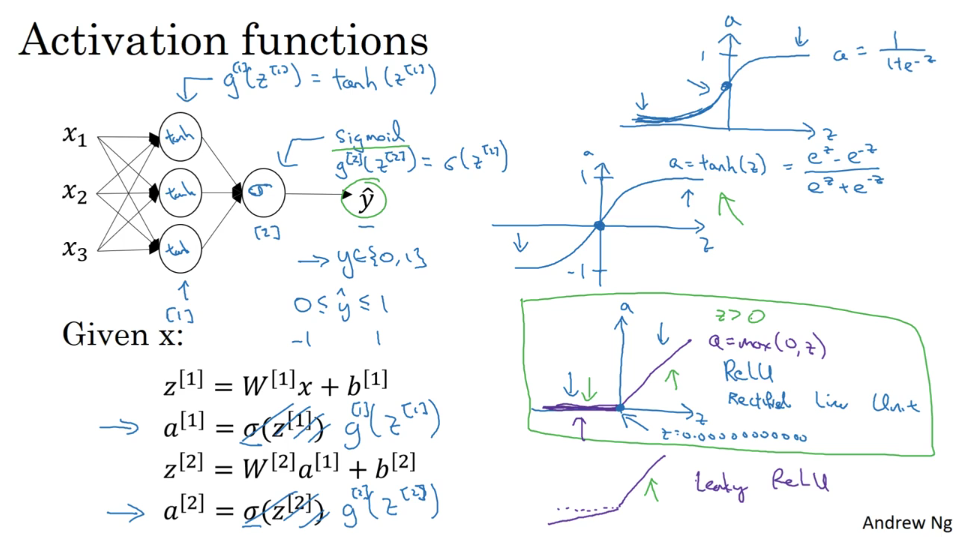 Activation functions
g^[1](z^[1]) = tanh(z^[1])
x₁
x₂
x₃
tanh
tanh
tanh
[1]
σ
[2]
sigmoid
g^[2](z^[2]) = σ(z^[2])
ŷ
→ y∈{0,1}
0 ≤ ŷ ≤ 1
-1 1
Given x:
z^[1] = W^[1]x + b^[1]
→ a^[1] = σ(z^[1]) g^[1](z^[1])
z^[2] = W^[2]a^[1] + b^[2]
→ a^[2] = σ(z^[2]) g^[2](z^[2])
a
1
z
a = 1/(1+e^-z)
a
1
-1
z
a = tanh(z) = (e^z − e^-z)/(e^z + e^-z)
a
z
z > 0
a = max(0,z)
ReLU
Rectified Linear Unit
z=0.00000000000
Leaky ReLU
Andrew Ng